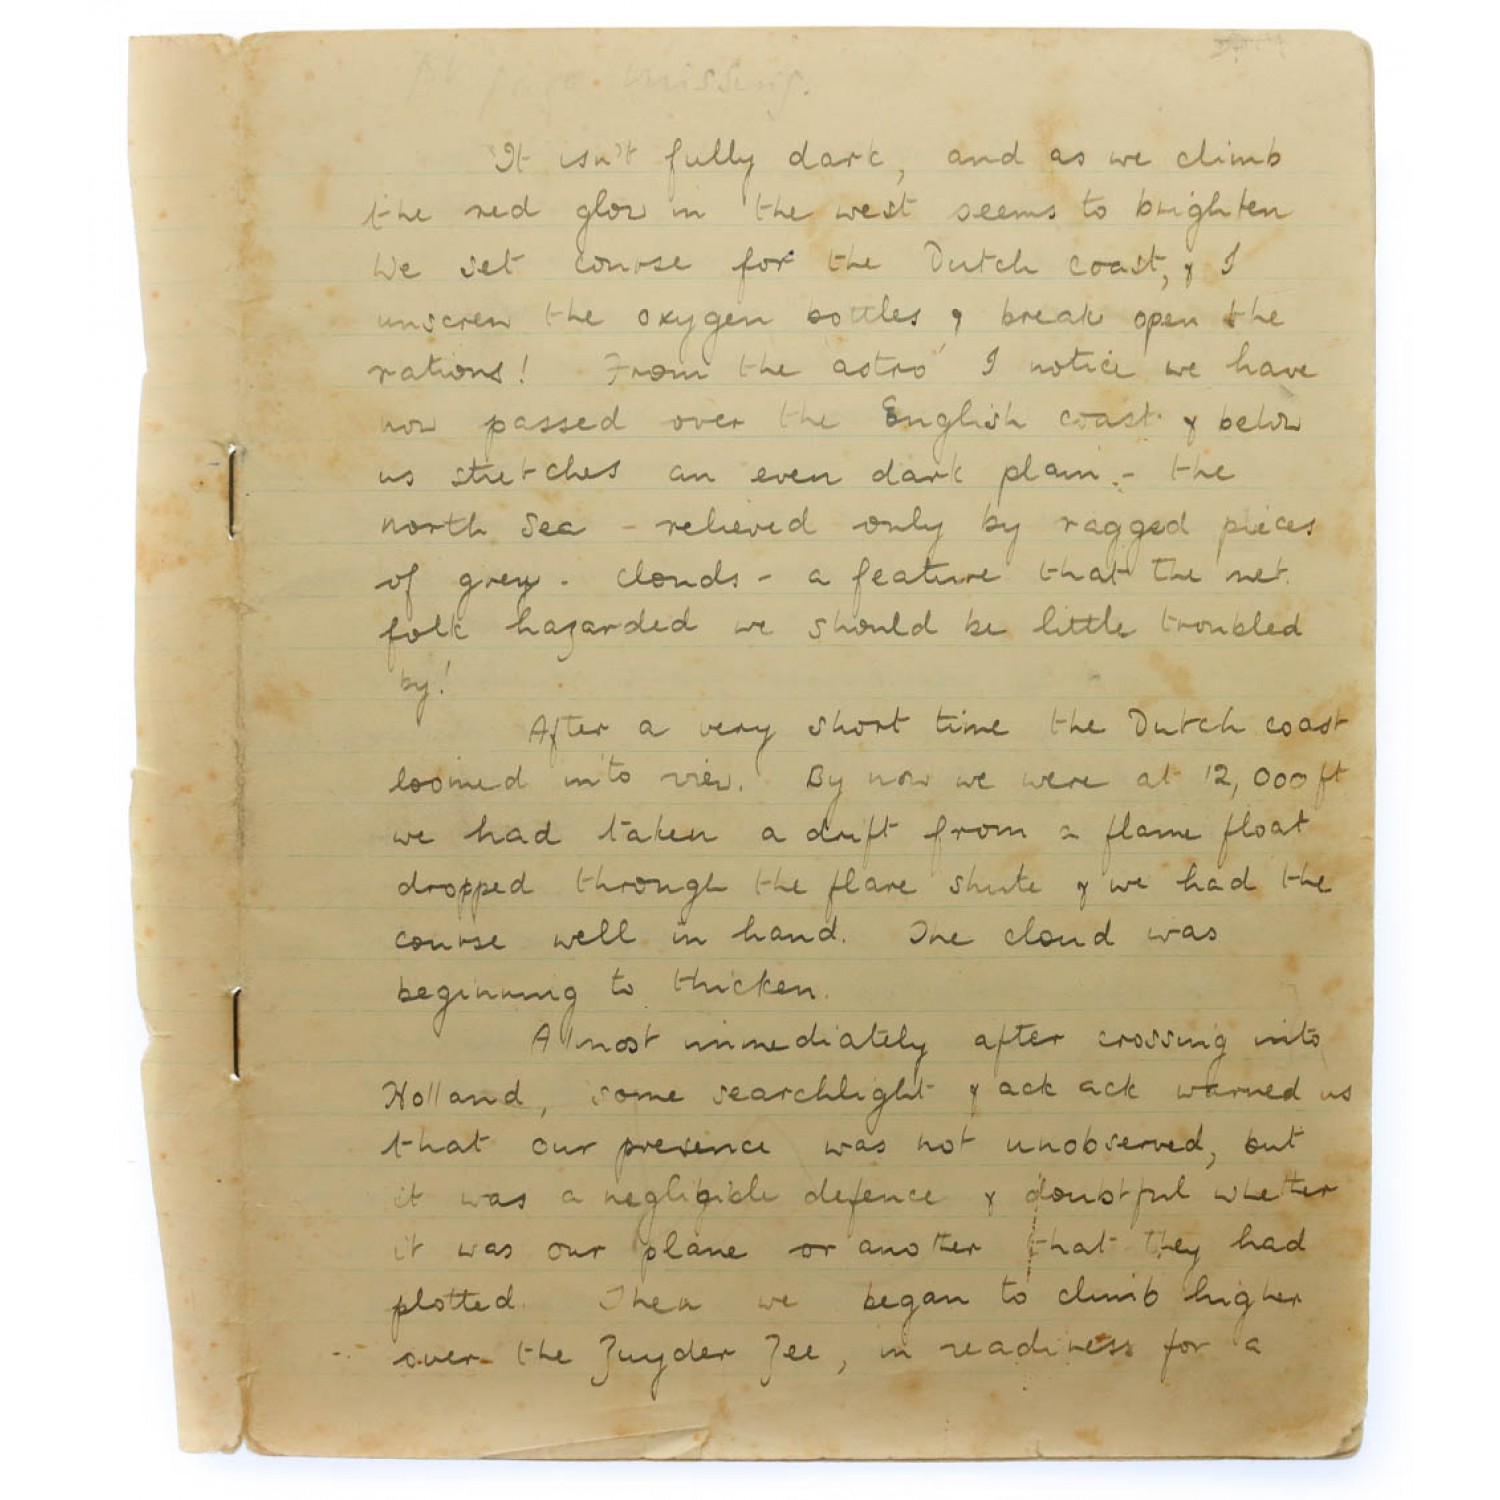 page missing.
It isn't fully dark, and as we climb
the red glow in the west seems to brighten
We set course for the Dutch coast, & I
unscrew the oxygen bottles & break open the
rations! From the 'astro' I notice we have
now passed over the English coast & below
us stretches an even dark plain - the
north sea - relieved only by ragged pieces
of grey - clouds - a feature that the met.
folk hazarded we should be little troubled
by!
After a very short time the Dutch coast
loomed into view. By now we were at 12,000 ft
we had taken a drift from a flame float
dropped through the flare shute & we had the
course well in hand. The cloud was
beginning to thicken.
Almost immediately after crossing into
Holland, some searchlight & ack ack warned us
that our presence was not unobserved, but
it was a negligible defence & doubtful whether
it was our plane or another that they had
plotted. Then we began to climb higher
over the Zuyder Zee, in readiness for a